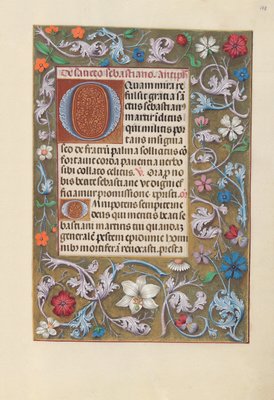 De sancto sebastiano. Antiph
O Quam mira re
fulsit gratia sā
ctus sebastianus
martir iclitus
qui militis por
tans insignia
sed de fratrū palma sollicitus cō
fortauit corda pauentia uerbo
sibi collato celitus. V. Ora p no
bis beate sebastiane Ut digni ef
ficiamur promissione xpisti.
Omnipotens sempiterne
deus qui meritis beati se
bastiani martiris tui quandā
generalē pestem epidimie homi
nibus mortiferā reuocasti. presta